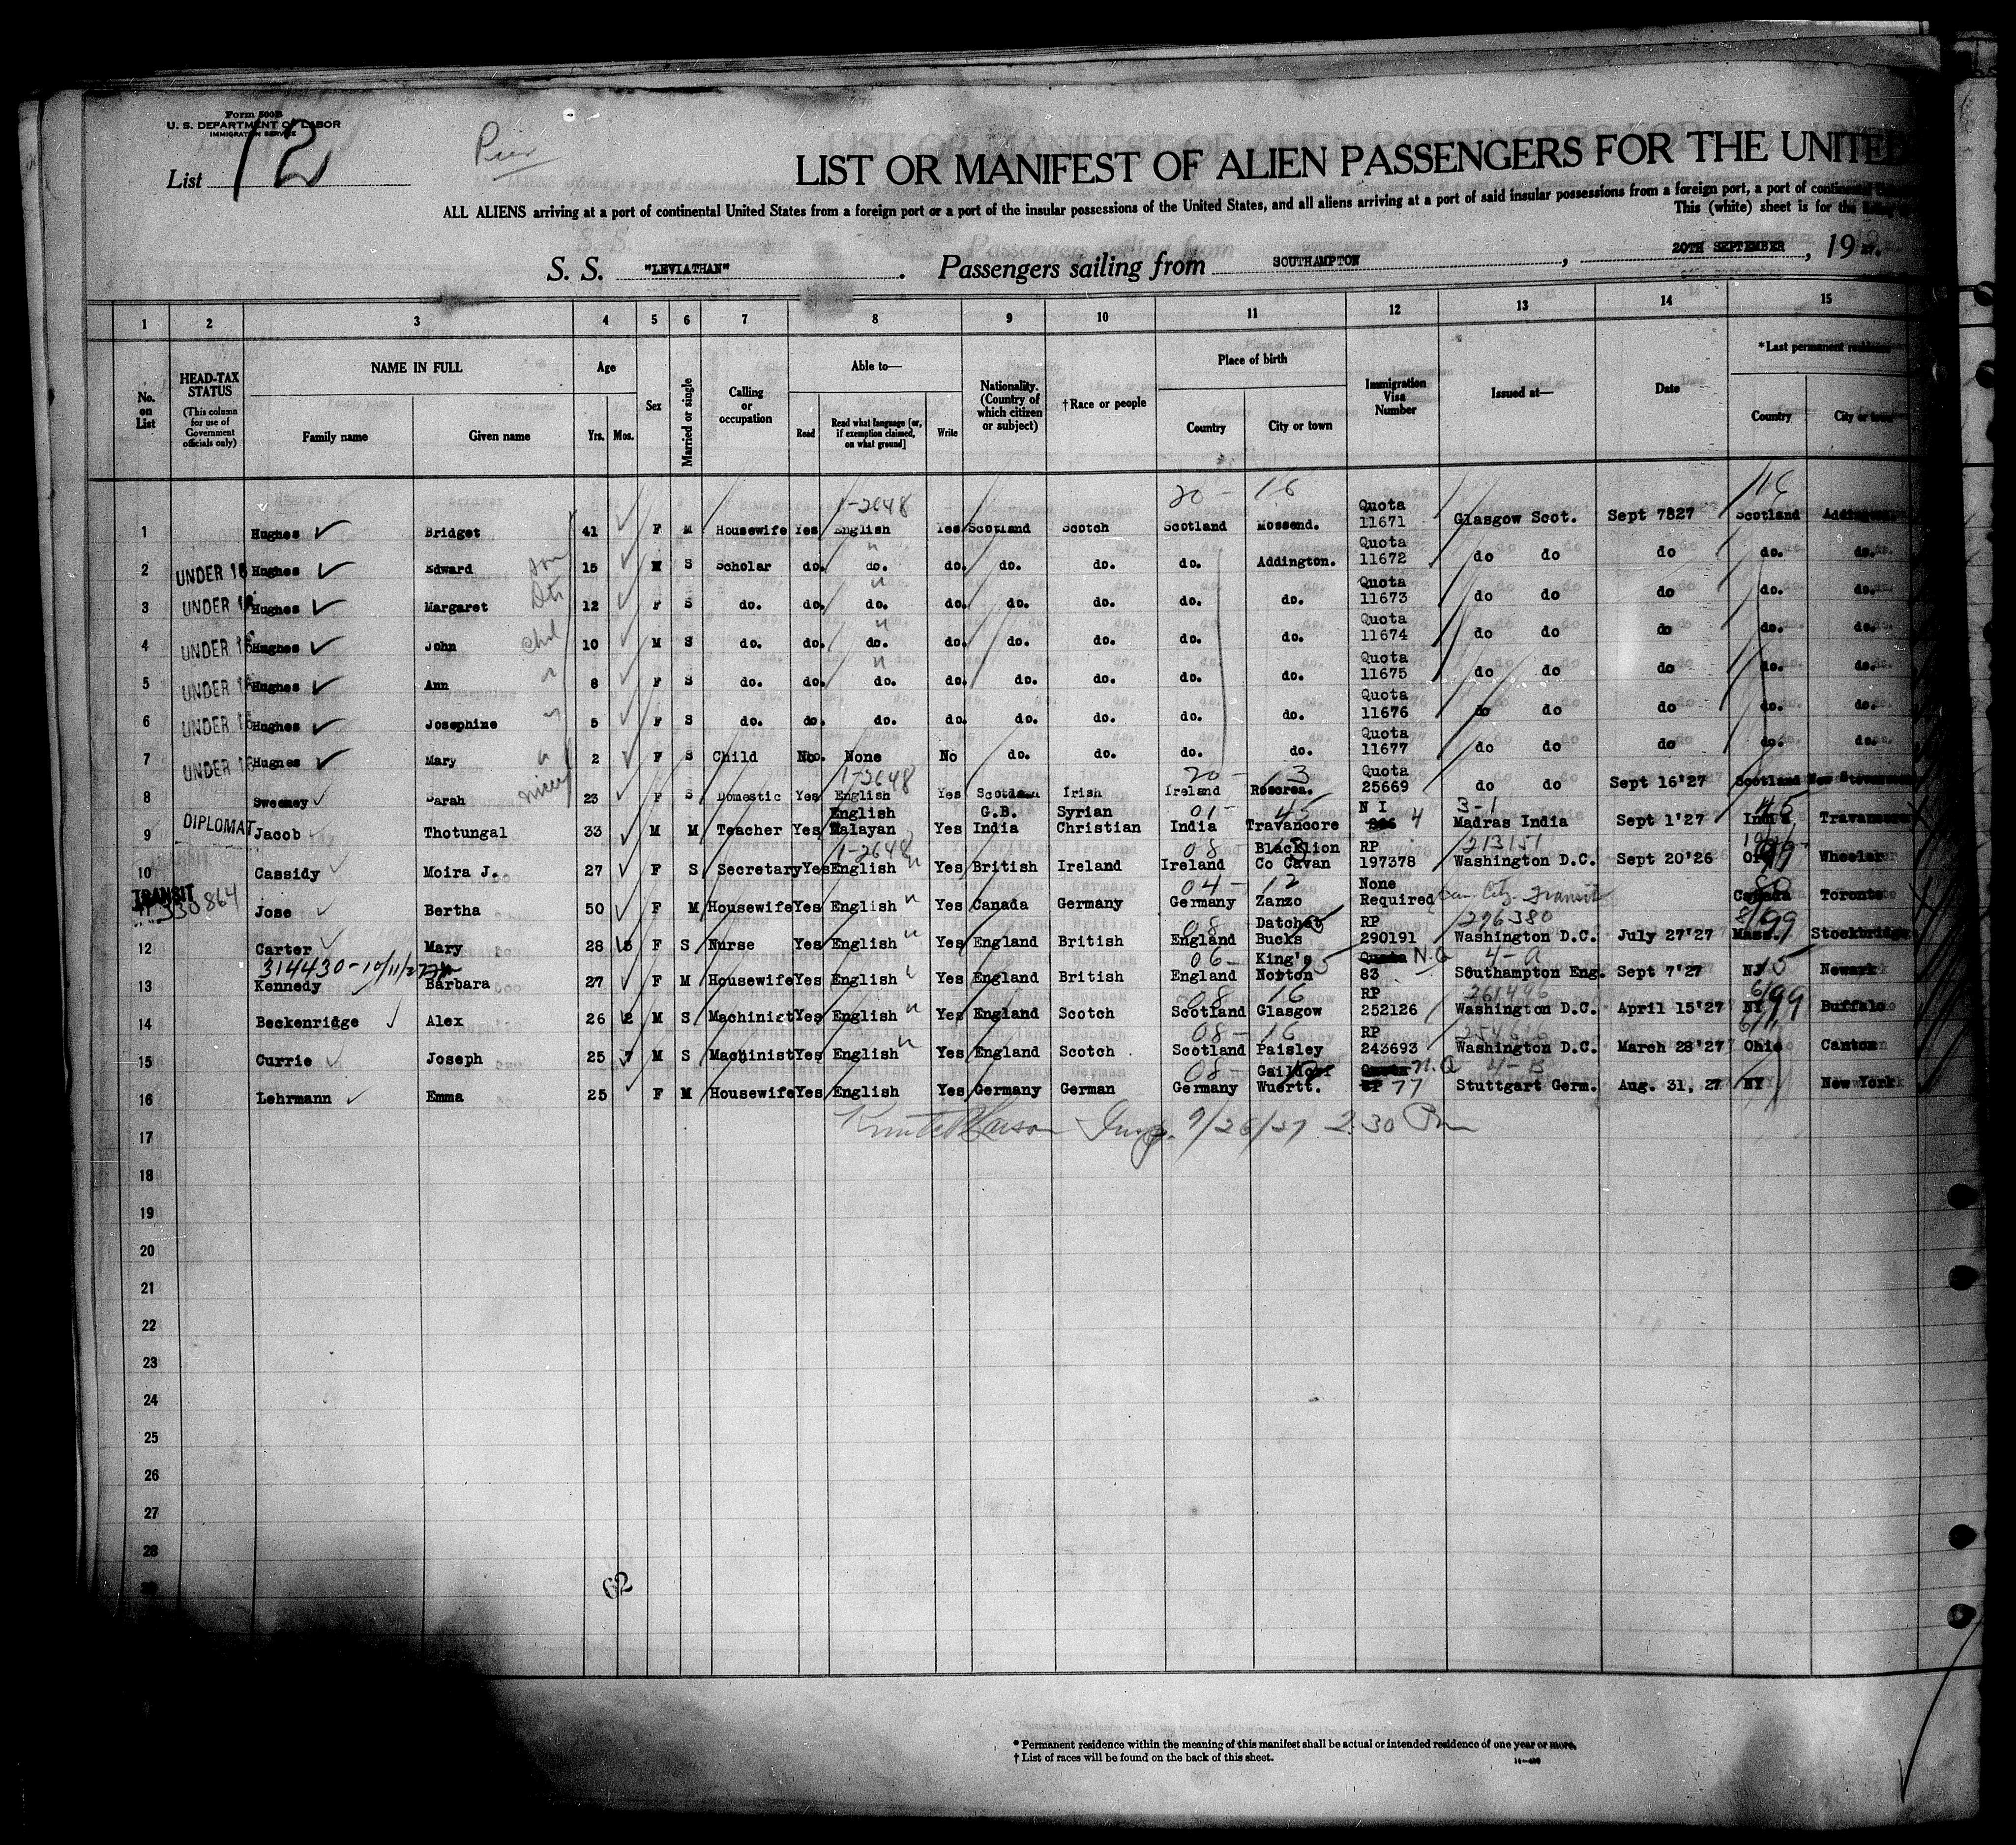 Form 500B
U. S. DEPARTMENT OF LABOR
IMMIGRATION SERVICE
List 12
Pier
LIST OR MANIFEST OF ALIEN PASSENGERS FOR THE UNITED
ALL ALIENS arriving at a port of continental United States from a foreign port or a port of the insular possessions of the United States, and all aliens arriving at a port of said insular possessions from a foreign port, a port of continental
This (white) sheet is for the
S. S. "LEVIATHAN" . Passengers sailing from SOUTHAMPTON , 20TH SEPTEMBER , 19 27.
1 2 3 4 5 6 7 8 9 10 11 12 13 14 15
No. on List HEAD-TAX STATUS (This column for use of Government officials only) NAME IN FULL Family name Given name Age Yrs. Mos. Sex Married or single Calling or occupation Able to— Read Read what language [or, if exemption claimed, on what ground] Write Nationality. (Country of which citizen or subject) †Race or people Place of birth Country City or town Immigration Visa Number Issued at— Date *Last permanent residence Country City or town
1-2648 20 - 16 16
1 Hughes Bridget 41 F M Housewife Yes English Yes Scotland Scotch Scotland Mossend. Quota 11671 Glasgow Scot. Sept 7827 Scotland
2 UNDER 16 Hughes Edward son 15 M S Scholar do. do. do. do. do. do. Addington. Quota 11672 do do do do. do.
3 UNDER 16 Hughes Margaret Dtr 12 F S do. do. do. do. do. do. do. do. Quota 11673 do do do do. do.
4 UNDER 16 Hughes John Chil 10 M S do. do. do. do. do. do. do. do. Quota 11674 do do do do. do.
5 UNDER 16 Hughes Ann " 8 F S do. do. do. do. do. do. do. do. Quota 11675 do do do do. do.
6 UNDER 16 Hughes Josephine " 5 F S do. do. do. do. do. do. do. do. Quota 11676 do do do do. do.
7 UNDER 16 Hughes Mary " 2 F S Child No. None No do. do. do. do. Quota 11677 do do do do. do.
1-2648 20 - 13
8 Sweeney Sarah niece 23 F S Domestic Yes English Yes Scotland Irish Ireland Roscrea. Quota 25669 do do Sept 16'27 Scotland New
01 - 45 3-1 45
9 DIPLOMAT Jacob Thotungal 33 M M Teacher Yes English Malayan Yes G.B. India Syrian Christian India Travancore N I 4 Madras India Sept 1'27 India Travancore
1-2648 08 213151
10 Cassidy Moira J. 27 F S Secretary Yes English Yes British Ireland Ireland Blacklion Co Cavan RP 197378 Washington D.C. Sept 20'26 Wheeler
04 - 12
TRANSIT 330864 Jose Bertha 50 F M Housewife Yes English Yes Canada Germany Germany Zanzo None Required Can. City. Transit Canada Toronto
08 276380 99
12 Carter Mary 28 F S Nurse Yes English Yes England British England Datchet Bucks RP 290191 Washington D.C. July 27'27 Mass. Stockbridge
314430-10/11/27 06 - N.Q 4-a
13 Kennedy Barbara 27 F M Housewife Yes English Yes England British England King's Norton Quota 83 Southampton Eng. Sept 7'27 NJ Newark
08 16 261496 99
14 Beckenridge Alex 26 2 M S Machinist Yes English Yes England Scotch Scotland Glasgow RP 252126 Washington D.C. April 15'27 NY Buffalo
08 - 16 254616
15 Currie Joseph 25 7 M S Machinist Yes English Yes England Scotch Scotland Paisley RP 243693 Washington D.C. March 28'27 Ohio Canton
08 n.Q 4-B
16 Lehrmann Emma 25 F M Housewife Yes English Yes Germany German Germany Gaildorf Wuertt. Quota 77 Stuttgart Germ. Aug. 31, 27 NY New York
Insp. 9/26/27 2.30 Pm
17
18
19
20
21
22
23
24
25
26
27
28
62
* Permanent residence within the meaning of this manifest shall be actual or intended residence of one year or more.
† List of races will be found on the back of this sheet.